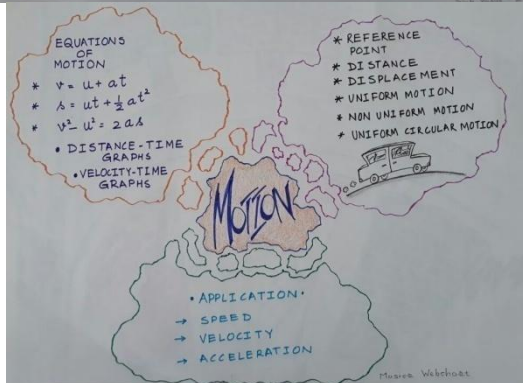 EQUATIONS
OF
MOTION
* v = u + at
* s = ut + ½ at²
* v² - u² = 2as
• DISTANCE-TIME
GRAPHS
• VELOCITY-TIME
GRAPHS
* REFERENCE
POINT
* DISTANCE
* DISPLACEMENT
* UNIFORM MOTION
* NON UNIFORM MOTION
* UNIFORM CIRCULAR MOTION
MOTION
• APPLICATION •
→ SPEED
→ VELOCITY
→ ACCELERATION